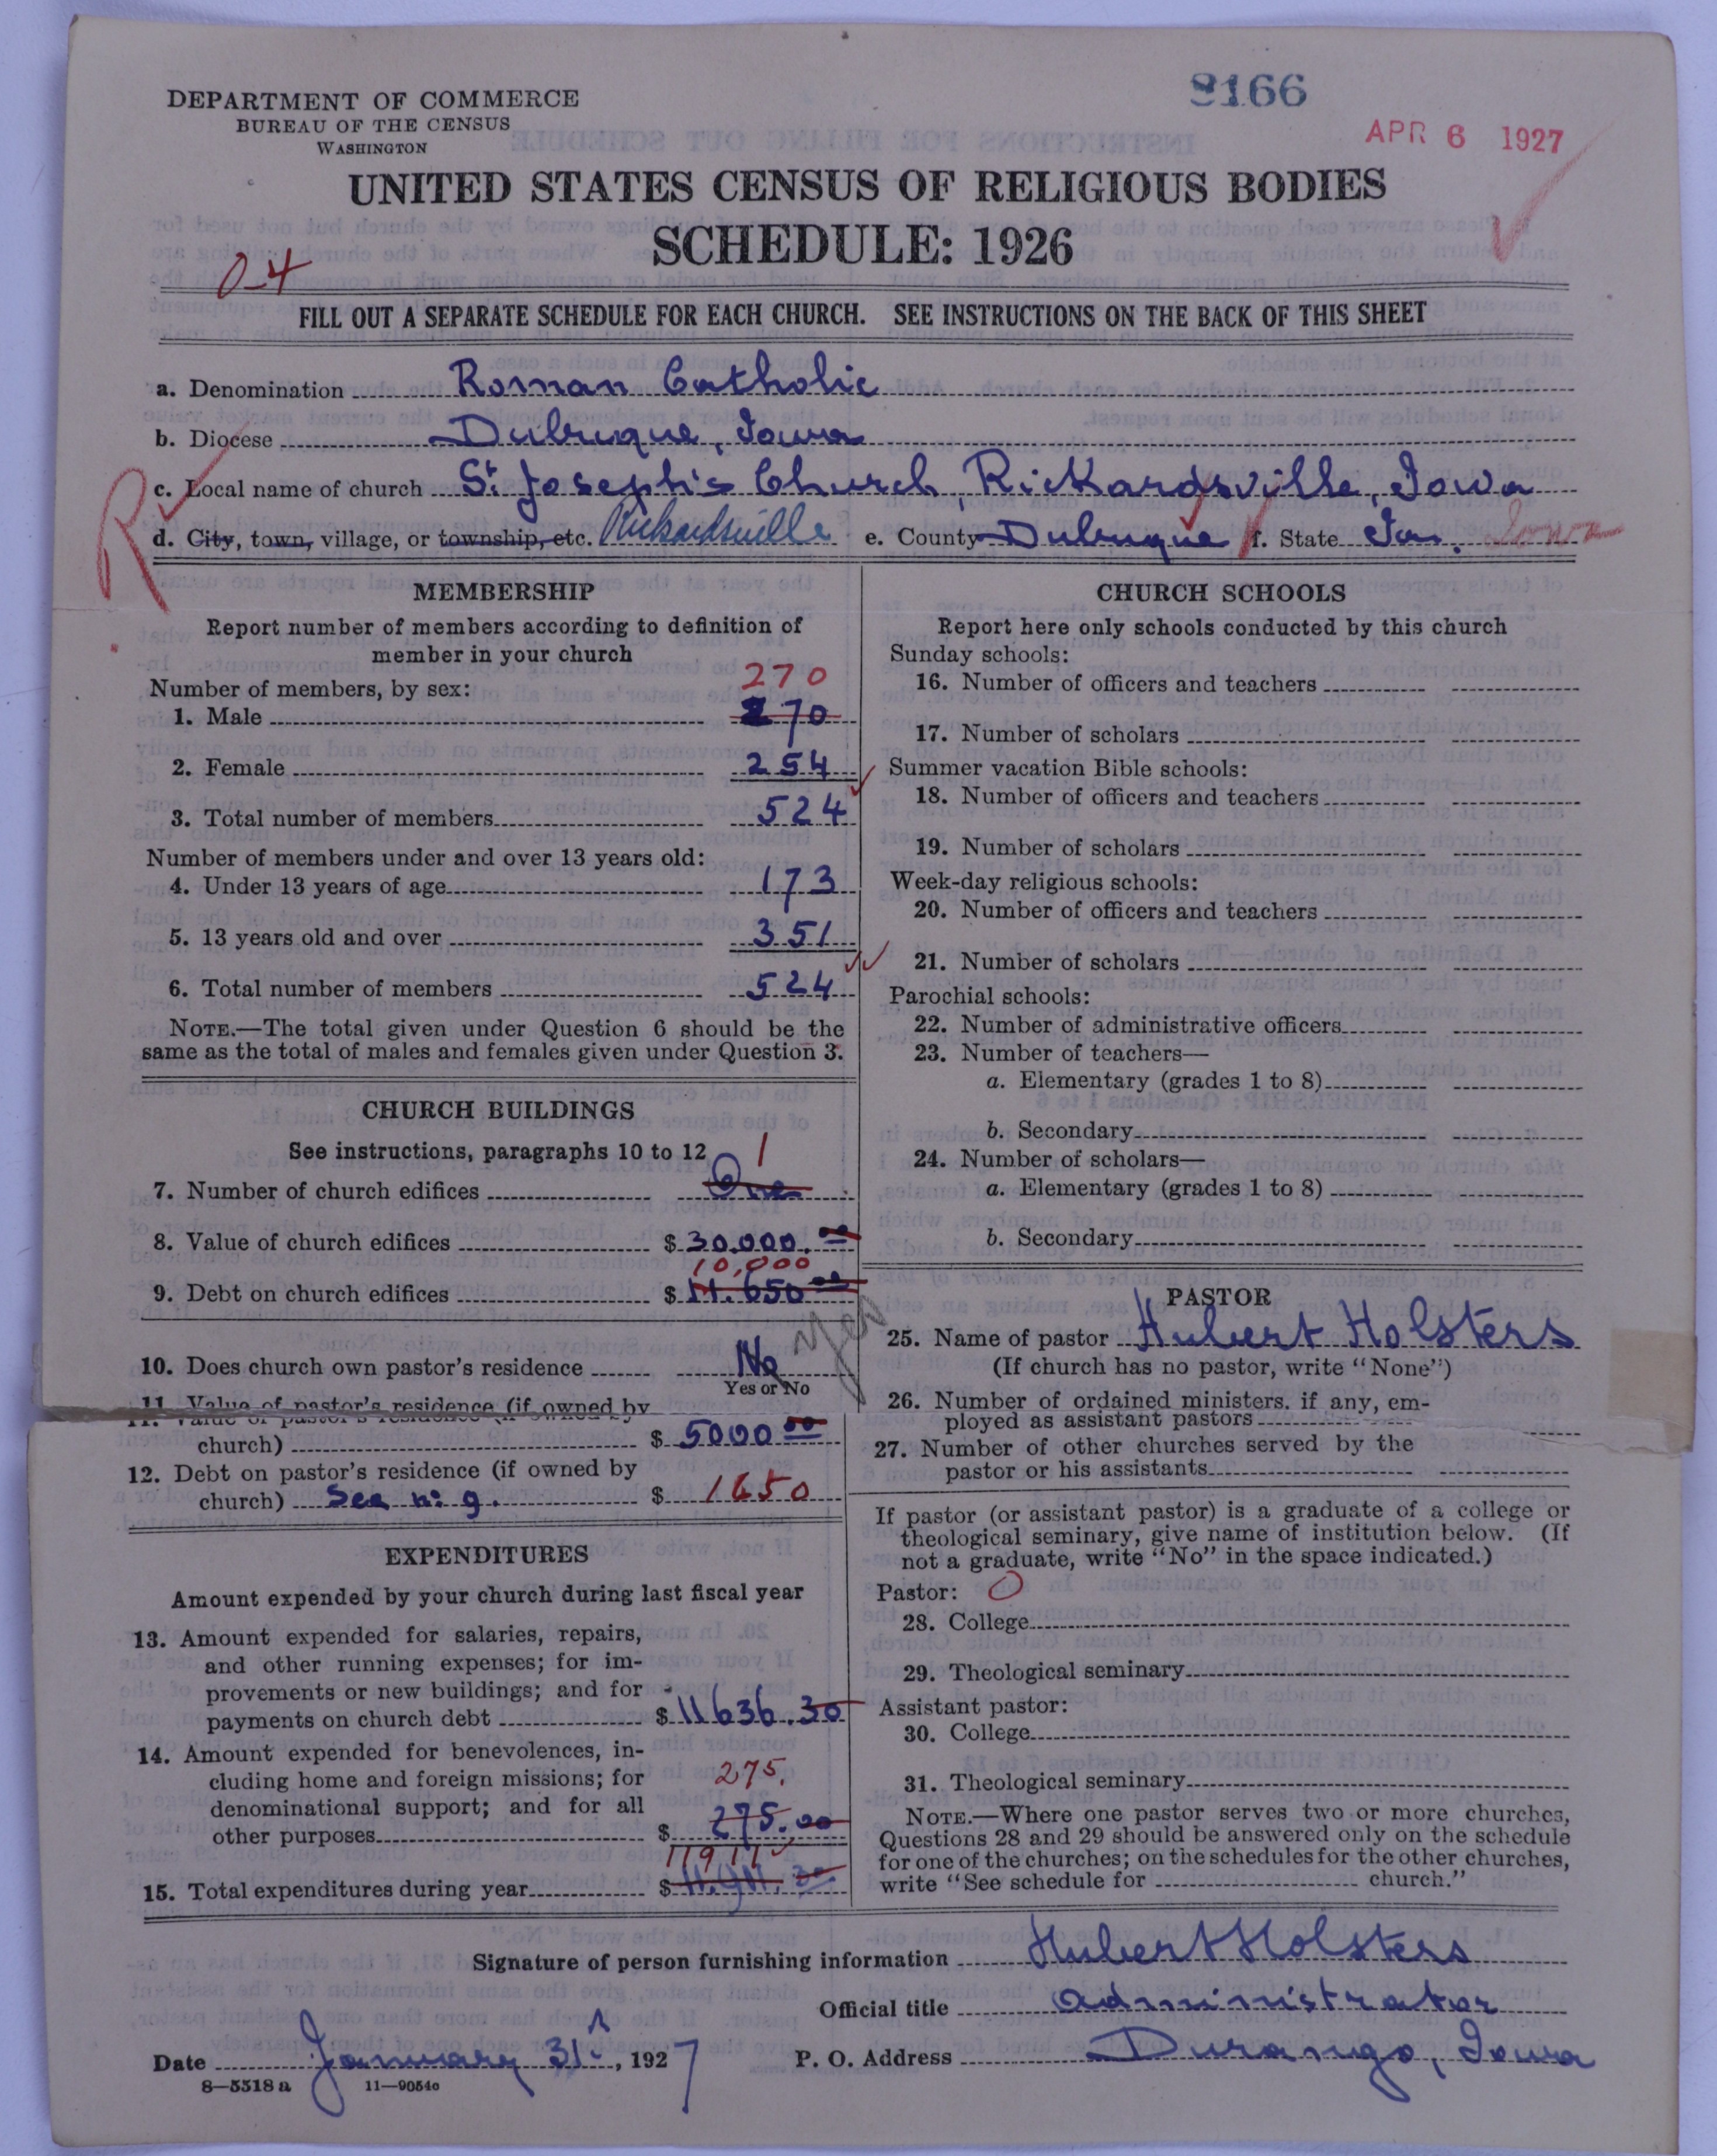 DEPARTMENT OF COMMERCE
BUREAU OF THE CENSUS
WASHINGTON
8166
APR 6 1927
UNITED STATES CENSUS OF RELIGIOUS BODIES
SCHEDULE: 1926
0-4
FILL OUT A SEPARATE SCHEDULE FOR EACH CHURCH. SEE INSTRUCTIONS ON THE BACK OF THIS SHEET
a. Denomination Roman Catholic
b. Diocese Dubuque, Iowa
c. Local name of church St. Joseph's Church, Rickardsville, Iowa
R
d. City, town, village, or township, etc. Rickardsville e. County Dubuque f. State Ia. Iowa
MEMBERSHIP
Report number of members according to definition of
member in your church
270
Number of members, by sex:
1. Male 270
2. Female 254
3. Total number of members 524
Number of members under and over 13 years old:
4. Under 13 years of age 173
5. 13 years old and over 351
6. Total number of members 524
NOTE.—The total given under Question 6 should be the
same as the total of males and females given under Question 3.
CHURCH BUILDINGS
See instructions, paragraphs 10 to 12
1
7. Number of church edifices One
8. Value of church edifices $ 30.000.00
10,000
9. Debt on church edifices $ 11.650 00
Yes
10. Does church own pastor's residence No
Yes or No
11. Value of pastor's residence (if owned by
church) $ 5000 00
12. Debt on pastor's residence (if owned by
church) See n: 9. $ 1650
EXPENDITURES
Amount expended by your church during last fiscal year
13. Amount expended for salaries, repairs,
and other running expenses; for im-
provements or new buildings; and for
payments on church debt $ 11636.30
14. Amount expended for benevolences, in-
cluding home and foreign missions; for
275.
denominational support; and for all
other purposes $ 275.00
11911
15. Total expenditures during year $ 11.911. 30
CHURCH SCHOOLS
Report here only schools conducted by this church
Sunday schools:
16. Number of officers and teachers
17. Number of scholars
Summer vacation Bible schools:
18. Number of officers and teachers
19. Number of scholars
Week-day religious schools:
20. Number of officers and teachers
21. Number of scholars
Parochial schools:
22. Number of administrative officers
23. Number of teachers—
a. Elementary (grades 1 to 8)
b. Secondary
24. Number of scholars—
a. Elementary (grades 1 to 8)
b. Secondary
PASTOR
25. Name of pastor Hubert Holsters
(If church has no pastor, write "None")
26. Number of ordained ministers, if any, em-
ployed as assistant pastors
27. Number of other churches served by the
pastor or his assistants
If pastor (or assistant pastor) is a graduate of a college or
theological seminary, give name of institution below. (If
not a graduate, write "No" in the space indicated.)
Pastor: 0
28. College
29. Theological seminary
Assistant pastor:
30. College
31. Theological seminary
NOTE.—Where one pastor serves two or more churches,
Questions 28 and 29 should be answered only on the schedule
for one of the churches; on the schedules for the other churches,
write "See schedule for church."
Signature of person furnishing information Hubert Holsters
Official title administrator
Date January 31st, 1927 P. O. Address Durango, Iowa
8—5518 a 11—9054c